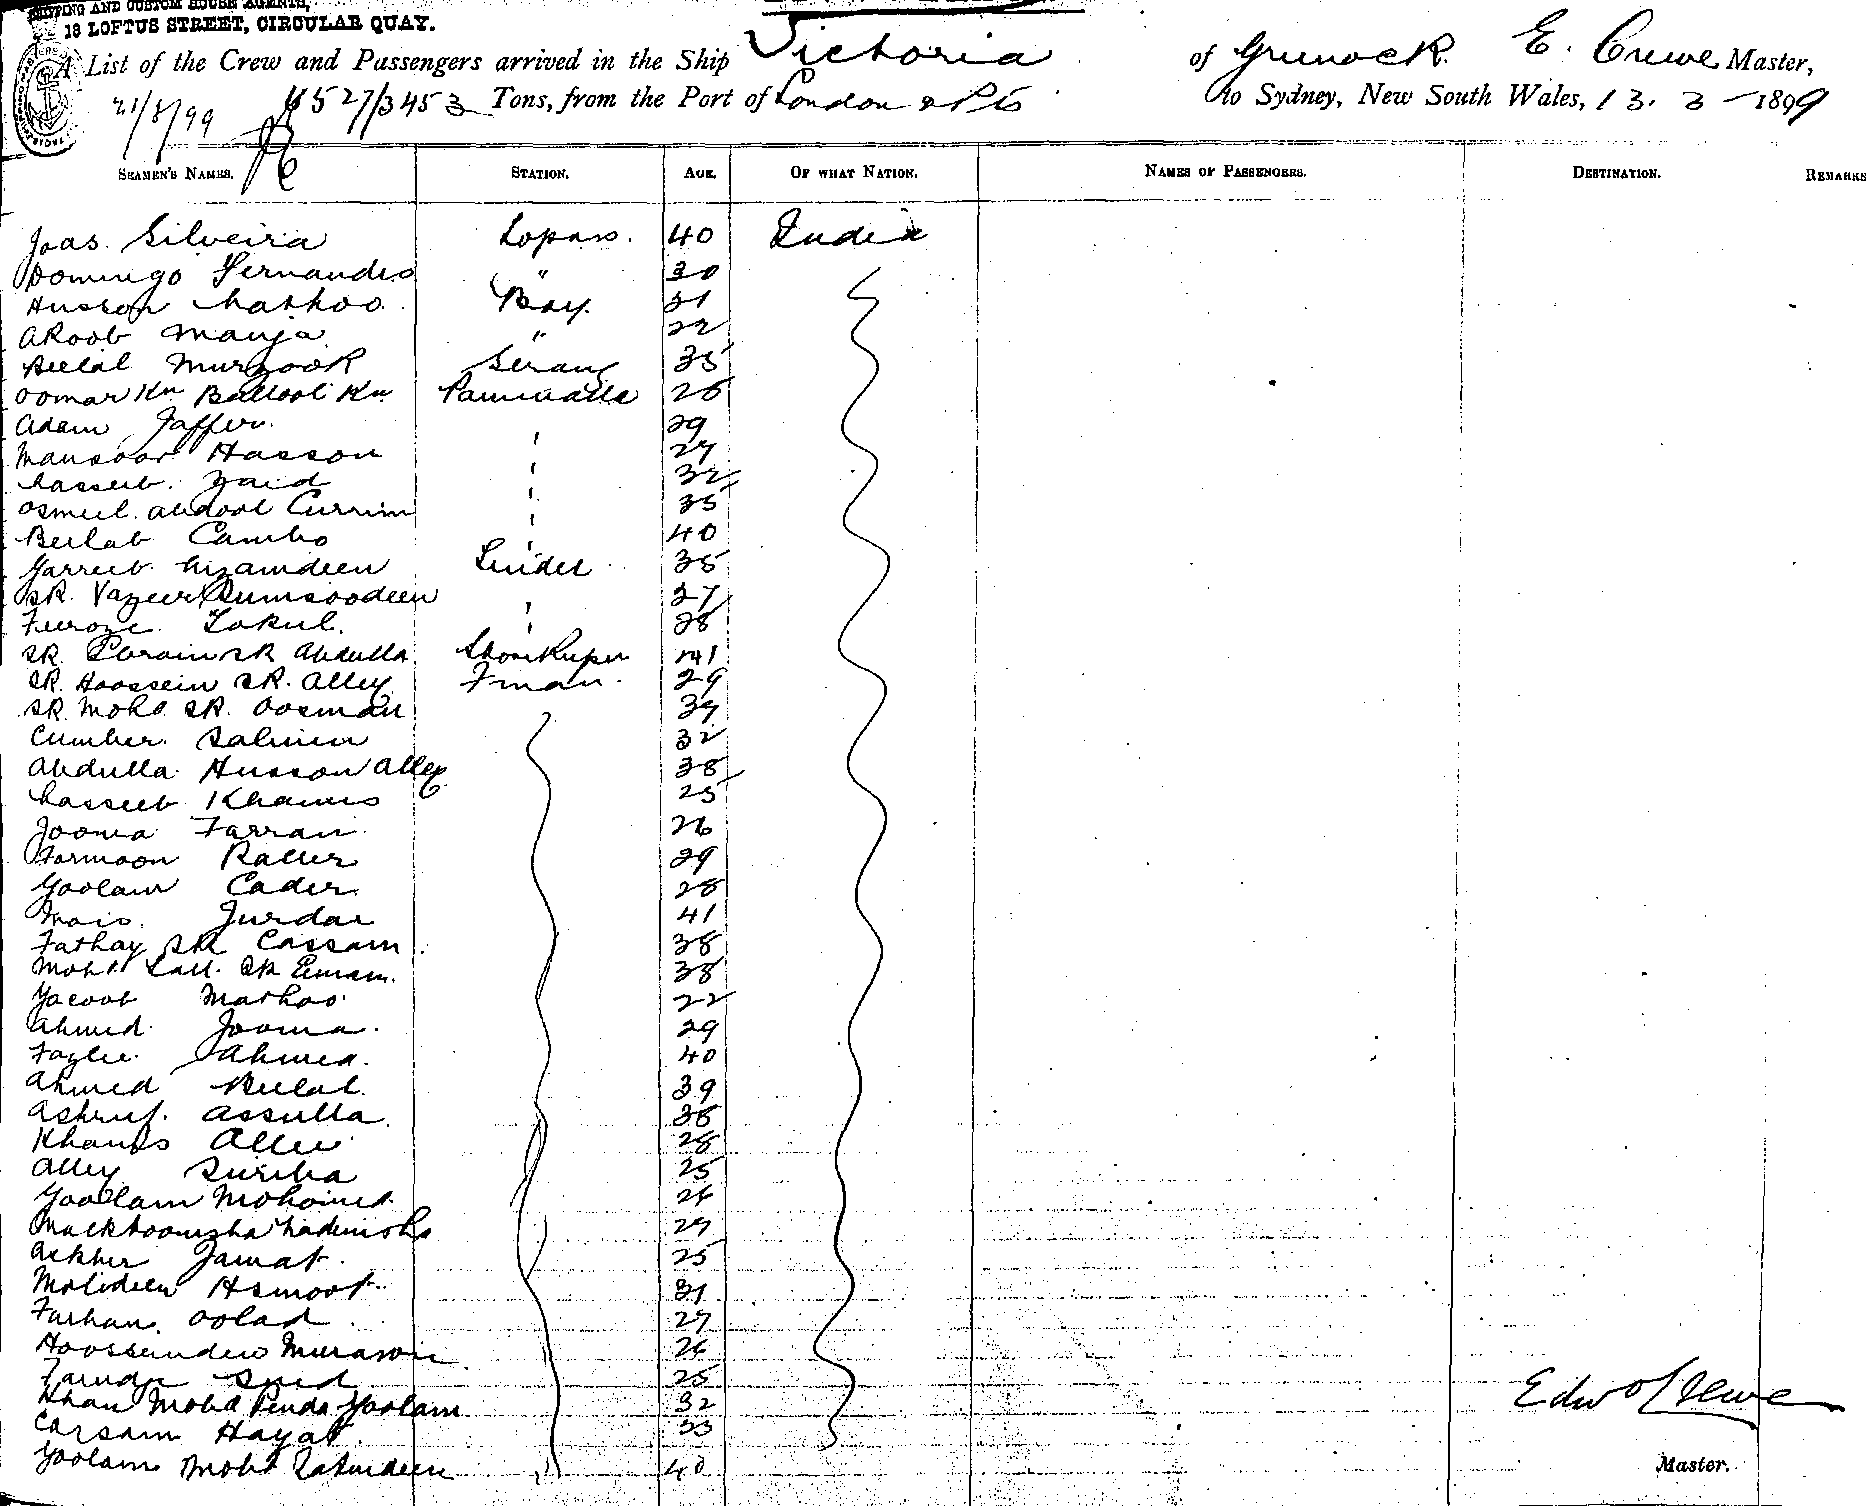 SHIPPING AND CUSTOM HOUSE AGENTS,
18 LOFTUS STREET, CIRCULAR QUAY.
A List of the Crew and Passengers arrived in the Ship Victoria of Greenock E. Crewe Master,
21/8/99 6527/3453 Tons, from the Port of London & Pts to Sydney, New South Wales, 13. 3 - 1899
SEAMEN'S NAMES. STATION. AGE. OF WHAT NATION. NAMES OF PASSENGERS. DESTINATION. REMARKS
Joas. Silveira Topass. 40 India
Domingo Fernandes " 30
Husson Boy. 21
Akoob Manja " 22
Beelal Murzook Serang 35
Oomar Kn Kn Panniwalla 26
Adam Jaffer. ' 29
Mansoor Hasson ' 27
Nasseeb Zaid ' 32
Osmeel Abdool Currim ' 35
Beelal Cambo ' 40
Garreeb Nizamdeen Tindel 35
SK. Vazeer ' 27
Feeroze ' 28
SK. SK Abdulla Storekeeper 41
SK. Hoossein SK. Alley F'man. 29
SK. Mohd SK. Oosman 37
Cumber Salmin 32
Abdulla Husson Alley 38
Nasseeb Khamis 25
Jooma Farran 26
Farmoon 29
Goolam Cader 28
Jurdan 41
Fathay SK Cassam 38
Mohd Lall SK Emam. 38
Yacoob Mathoo 22
Ahmed Jooma. 29
Fazlee Ahmed. 40
Ahmed Beelal 39
Ashruf. Assulla 38
Khamis Allee 28
Alley 25
Goolam Mohomed 26
29
Ackber Jamat. 25
Mohideen 31
Farhan Oolad 27
26
25
Khan Mohd Goolam 32
Cassam Hayat 33
Goolam Mohd 40
Edw Crewe
Master.